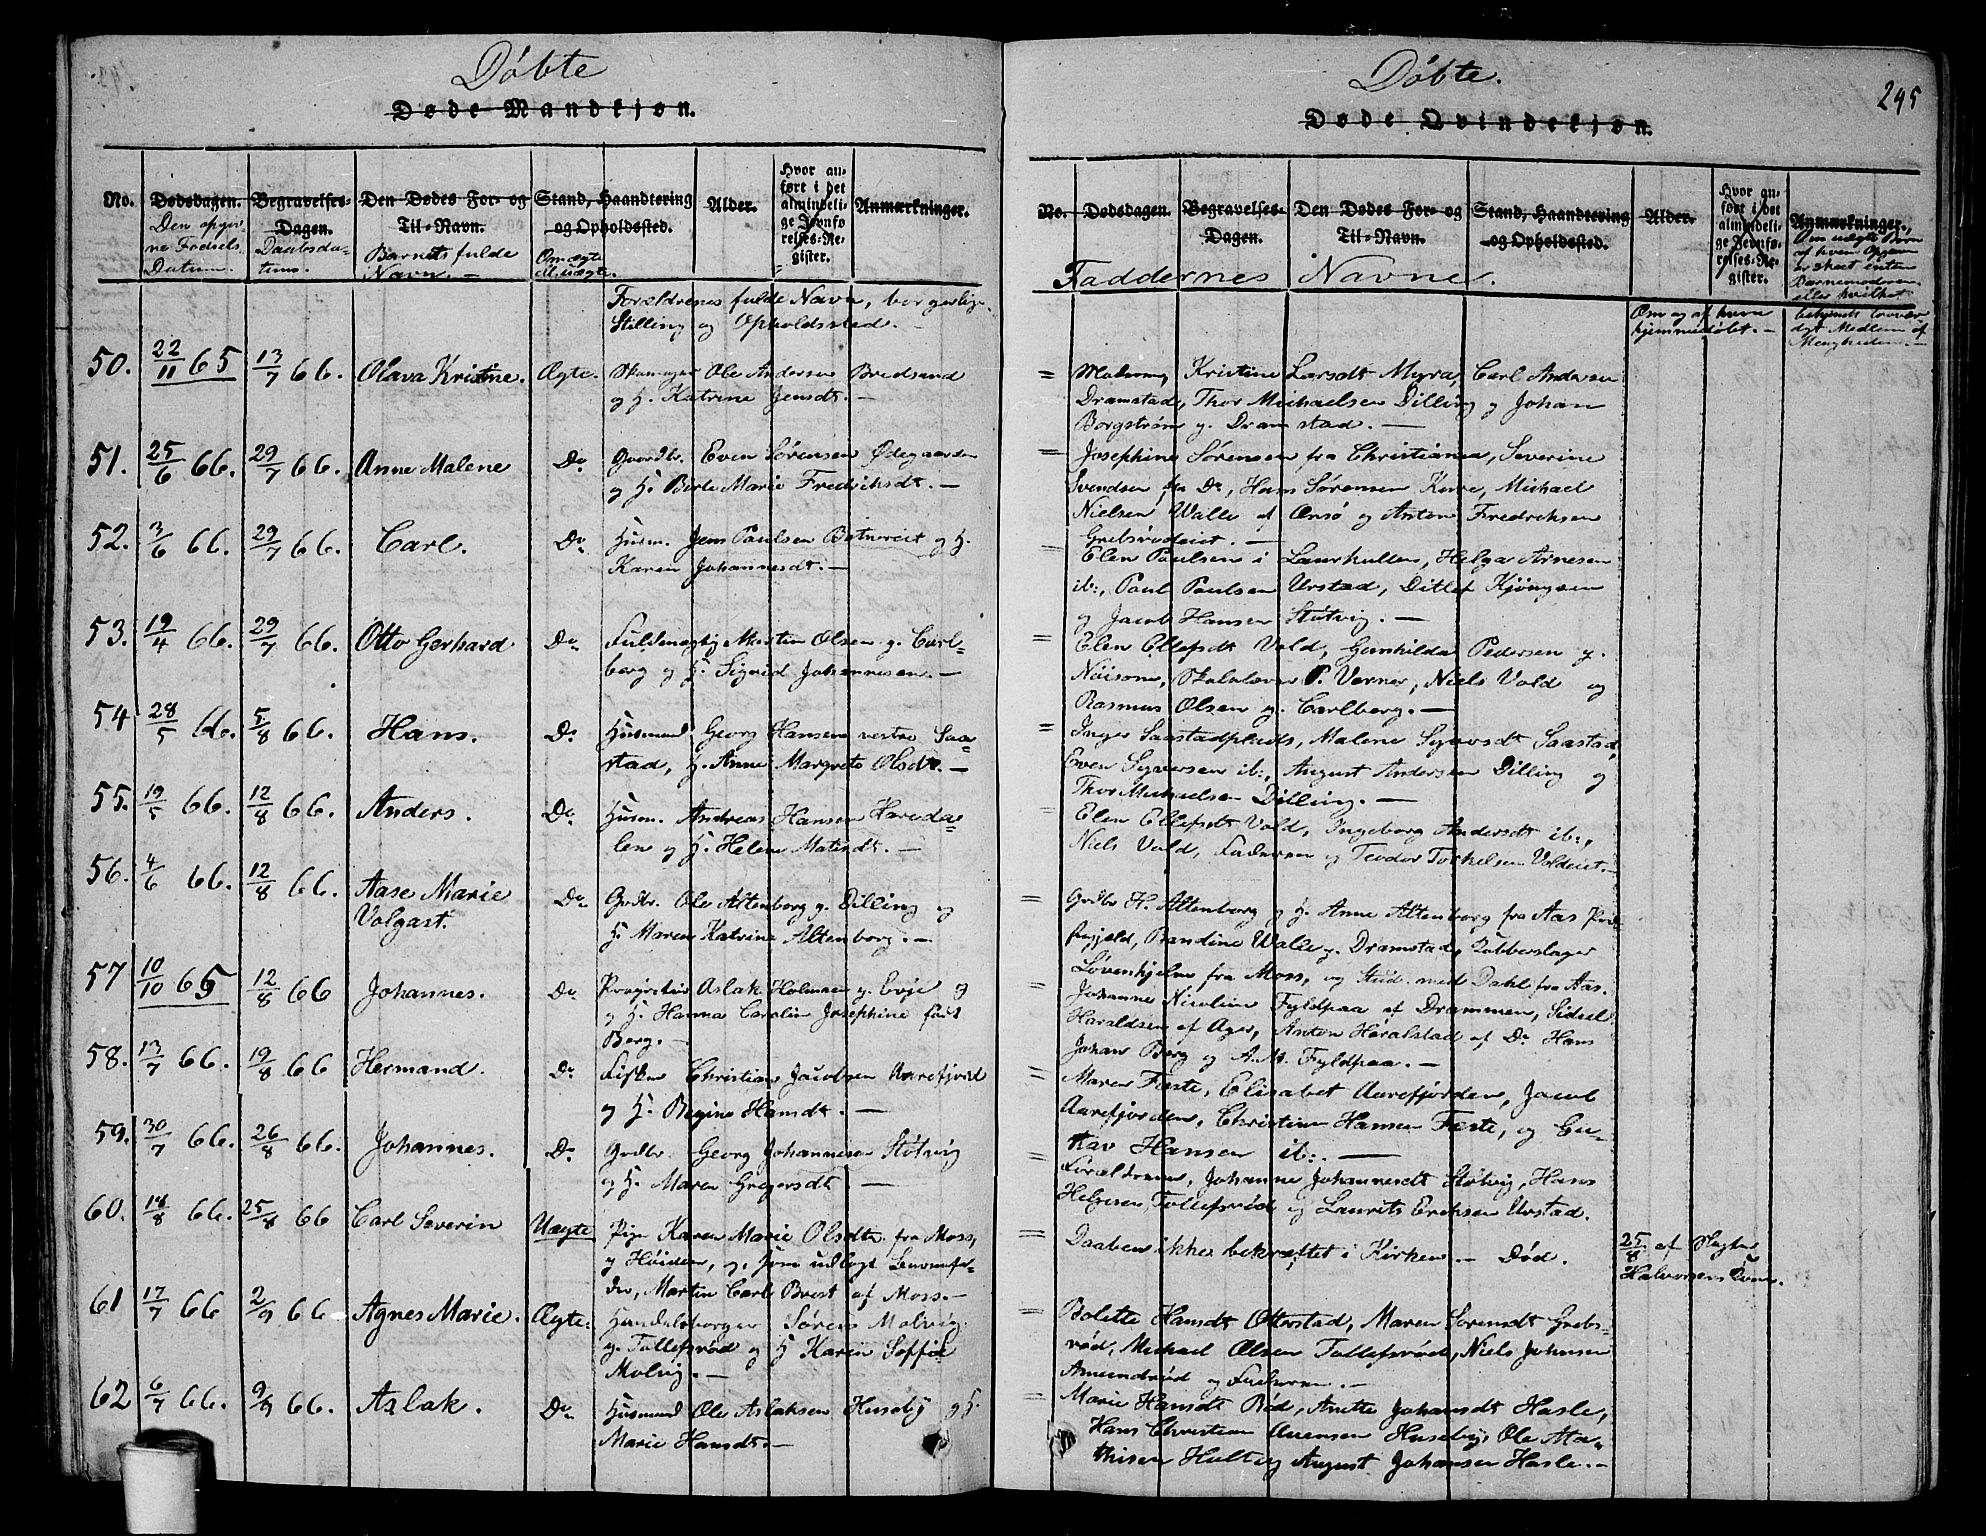 Døbte
Døde Mandkjøn.
No.
Dødsdagen.
Den opgivne Fødsels Datum.
Begravelses-Dagen.
Daabsdatums.
Den Dødes For- og Til-Navn.
Barnets fulde Navn. —
Stand, Haandtering og Opholdssted.
Om ægte el. uægte.
Alder.
Hvor anført i det almindelige Jevnførelses-Register.
Anmærkninger.
Forældrenes fulde Navn, borgerlige
Stilling og Opholdssted. —
50. 22/11 65 13/7 66. Olava Kristine. Ægte. Ole Andersen Bredsand
og H. Katrine Jensdt. —
51. 25/6 66. 29/7 66. Anne Malene Do Gaardbr. Even Sørensen Ødegaarden
og H. Berte Marie Fredriksdt. —
52. 3/6 66. 29/7 66. Carl. Do Husm. Jens Paulsen Botnereiet og H.
Karen Johannesdt. —
53. 19/4 66. 29/7 66. Otto Gerhard Do Fuldmægtig Morten Olsen g. Carl-
berg og H. Sigrid Johannesen. —
54 28/5 66. 5/8 66. Hans. Do Husmand Georg Hansen vestre Saa-
stad, H. Anne Margrete Olsdt. —
55. 19/5 66. 12/8 66. Anders. Do Husm. Andreas Hansen Hareda-
len og H. Helene Matisdt. —
56. 4/6 66. 12/8 66. Aase Marie
Volgast. Do Grdbr. Ole Altenborg g. Dilling og
H. Maren Katrine Altenborg. —
57 10/10 65 12/8 66 Johannes. Do Aslak Holmsen g. Evje og
H. Hanna Carolin Josephine født
Berg. —
58. 13/7 66. 19/8 66 Hermand. Do Fisker Christian Jacobsen Aarefjord
og H. Regine Hansdt. —
59. 30/7 66. 26/8 66. Johannes. Do Grdbr. Georg Johannesen Støtvig
og H. Maren Gregersdt —
60. 18/8 66. 25/8 66 Carl Severin Uægte Pige Karen Marie Olsdt. fra Moss,
g Høiden, og som udlagt Barnefa-
der, Martin Carl Brest af Moss. —
61 17/7 66 2/9 66 Agnes Marie. Ægte. Handelsborger Sørens Molvig
g. Tollefsrød og H. Karen Soffie
Molvig. —
62 6/7 66. 9/9 66. Aslak. Do Husmand Ole Aslaksen Huseby og H.
Marie Hansdt. —
Døbte.
245
Døde Qvindekjøn.
No.
Dødsdagen.
Begravelses-Dagen.
Den Dødes For- og Til-Navn.
Stand, Haandtering og Opholdssted.
Alder.
Hvor anført i det almindelige Jevnførelses-Register.
Anmærkninger.
Om uægte Barn
af hvem Opgaven
er skeet enten
Barnemoderen
eller hvilket
bekjendt troværdigt Medlem af
Menigheden. —
Faddernes Navne.
Om og af hvem
hjemmedøbt. —
= Kristine Larsdt Myra, Carl Andersen
Dramstad, Thor Michaelsen Dilling og Johan
Borgstrøm g. Dramstad. —
= Josephine Sørensen fra Christiania, Severine
Svendsen fra Do, Hans Sørensen Kure, Michael
Nielsen Walle af Onsø og Anton Fredriksen
Grebsrødeiet. —
= Elen Paulsen i Laurkullen, Helga Arnesen
ib:, Paul Paulsen Urstad, Ditlef Kjøngsen
og Jacob Hansen Støtvig. —
= Elen Ellefsdt Vold, Gunhilda Pedersen g.
Nøisom, Skolelærer P. Verner, Niels Vold og
Rasmus Olsen g. Carlberg. —
= Inger Saastadpleds, Malene Syversdt Saastad,
Even Syversen ib:, August Andersen Dilling og
Thor Michaelsen Dilling. —
= Elen Ellefsdt Vold, Ingeborg Andersdt ib:,
Niels Vold, Faderen og Teodor Torkelsen Voldeiet. —
= Grdbr H. Altenborg og H. Anne Altenborg fra Aas Præ-
stegjeld, Randine Walle g. Dramstad, Kobberslager
Løvenhjelm fra Moss, og Stud. med Dahl fra Aas.
= Johanne Nicoline Fyldpaa af Drammen, Sidsel
Haraldsen af Ager, Anton Haralstad af Do Hans
Johan Berg og A. M. Fyldpaa. —
= Maren Feste, Elisabet Aarefjorden, Jacob
Aarefjorden, Christian Hansen Feste, og Gu-
stav Hansen ib:. —
= Forældrene, Johanne Johannesdt Støtvig, Hans
Helgesen Tollefsrød og Laurits Eriksen Urstad.
= Daaben ikke bekræftet i Kirken. — Død. 25/8 af
Halvorsens
= Bolette Hansdt Otterstad, Maren Sørensdt Grebs-
rød, Michael Olsen Tollefsrød, Niels Johnsen
Amundrød og Faderen. —
= Marie Hansdt Rød, Anette Johansdt Hasle,
Hans Christian Huseby, Ole Ma-
thisen Hultvig August Johansen Hasle. —